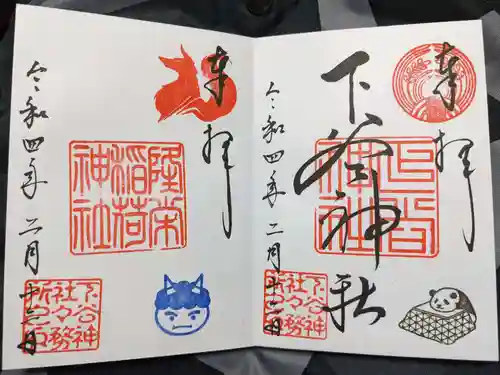 奉拝
下谷神社
令和四年二月十三日
下谷
神社
下谷神
社々務
所之印
奉拝
令和四年二月十三日
隆栄
稲荷
神社
下谷神
社々務
所之印